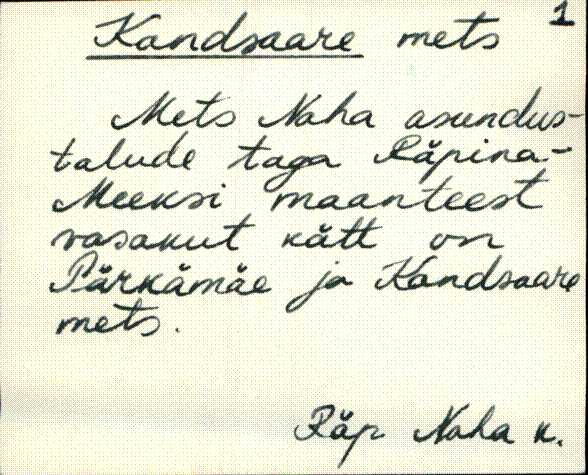 1
Kandsaare mets
Mets Naha asundus-
talude taga Räpina-
Meeksi maanteest
vasakut kätt on
Pärkämäe ja Kandsaare
mets.
Räp Naha k.